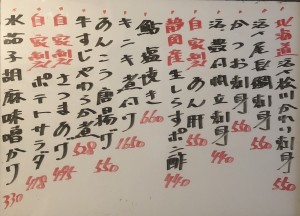 北海道 活〆松川かれい刺身
活〆尾長鯛刺身
かつお刺身 550
活〆 帆立刺身 440
自家製 あん肝 550
静岡産 生しらすポン酢 440
鮎塩焼き 660
キンキ煮付け 1650
あんこう唐揚げ
牛すじやわらか煮 528
自家製 さつまあげ 495
自家製 ポテトサラダ 418
水茄子胡麻味噌がけ 330